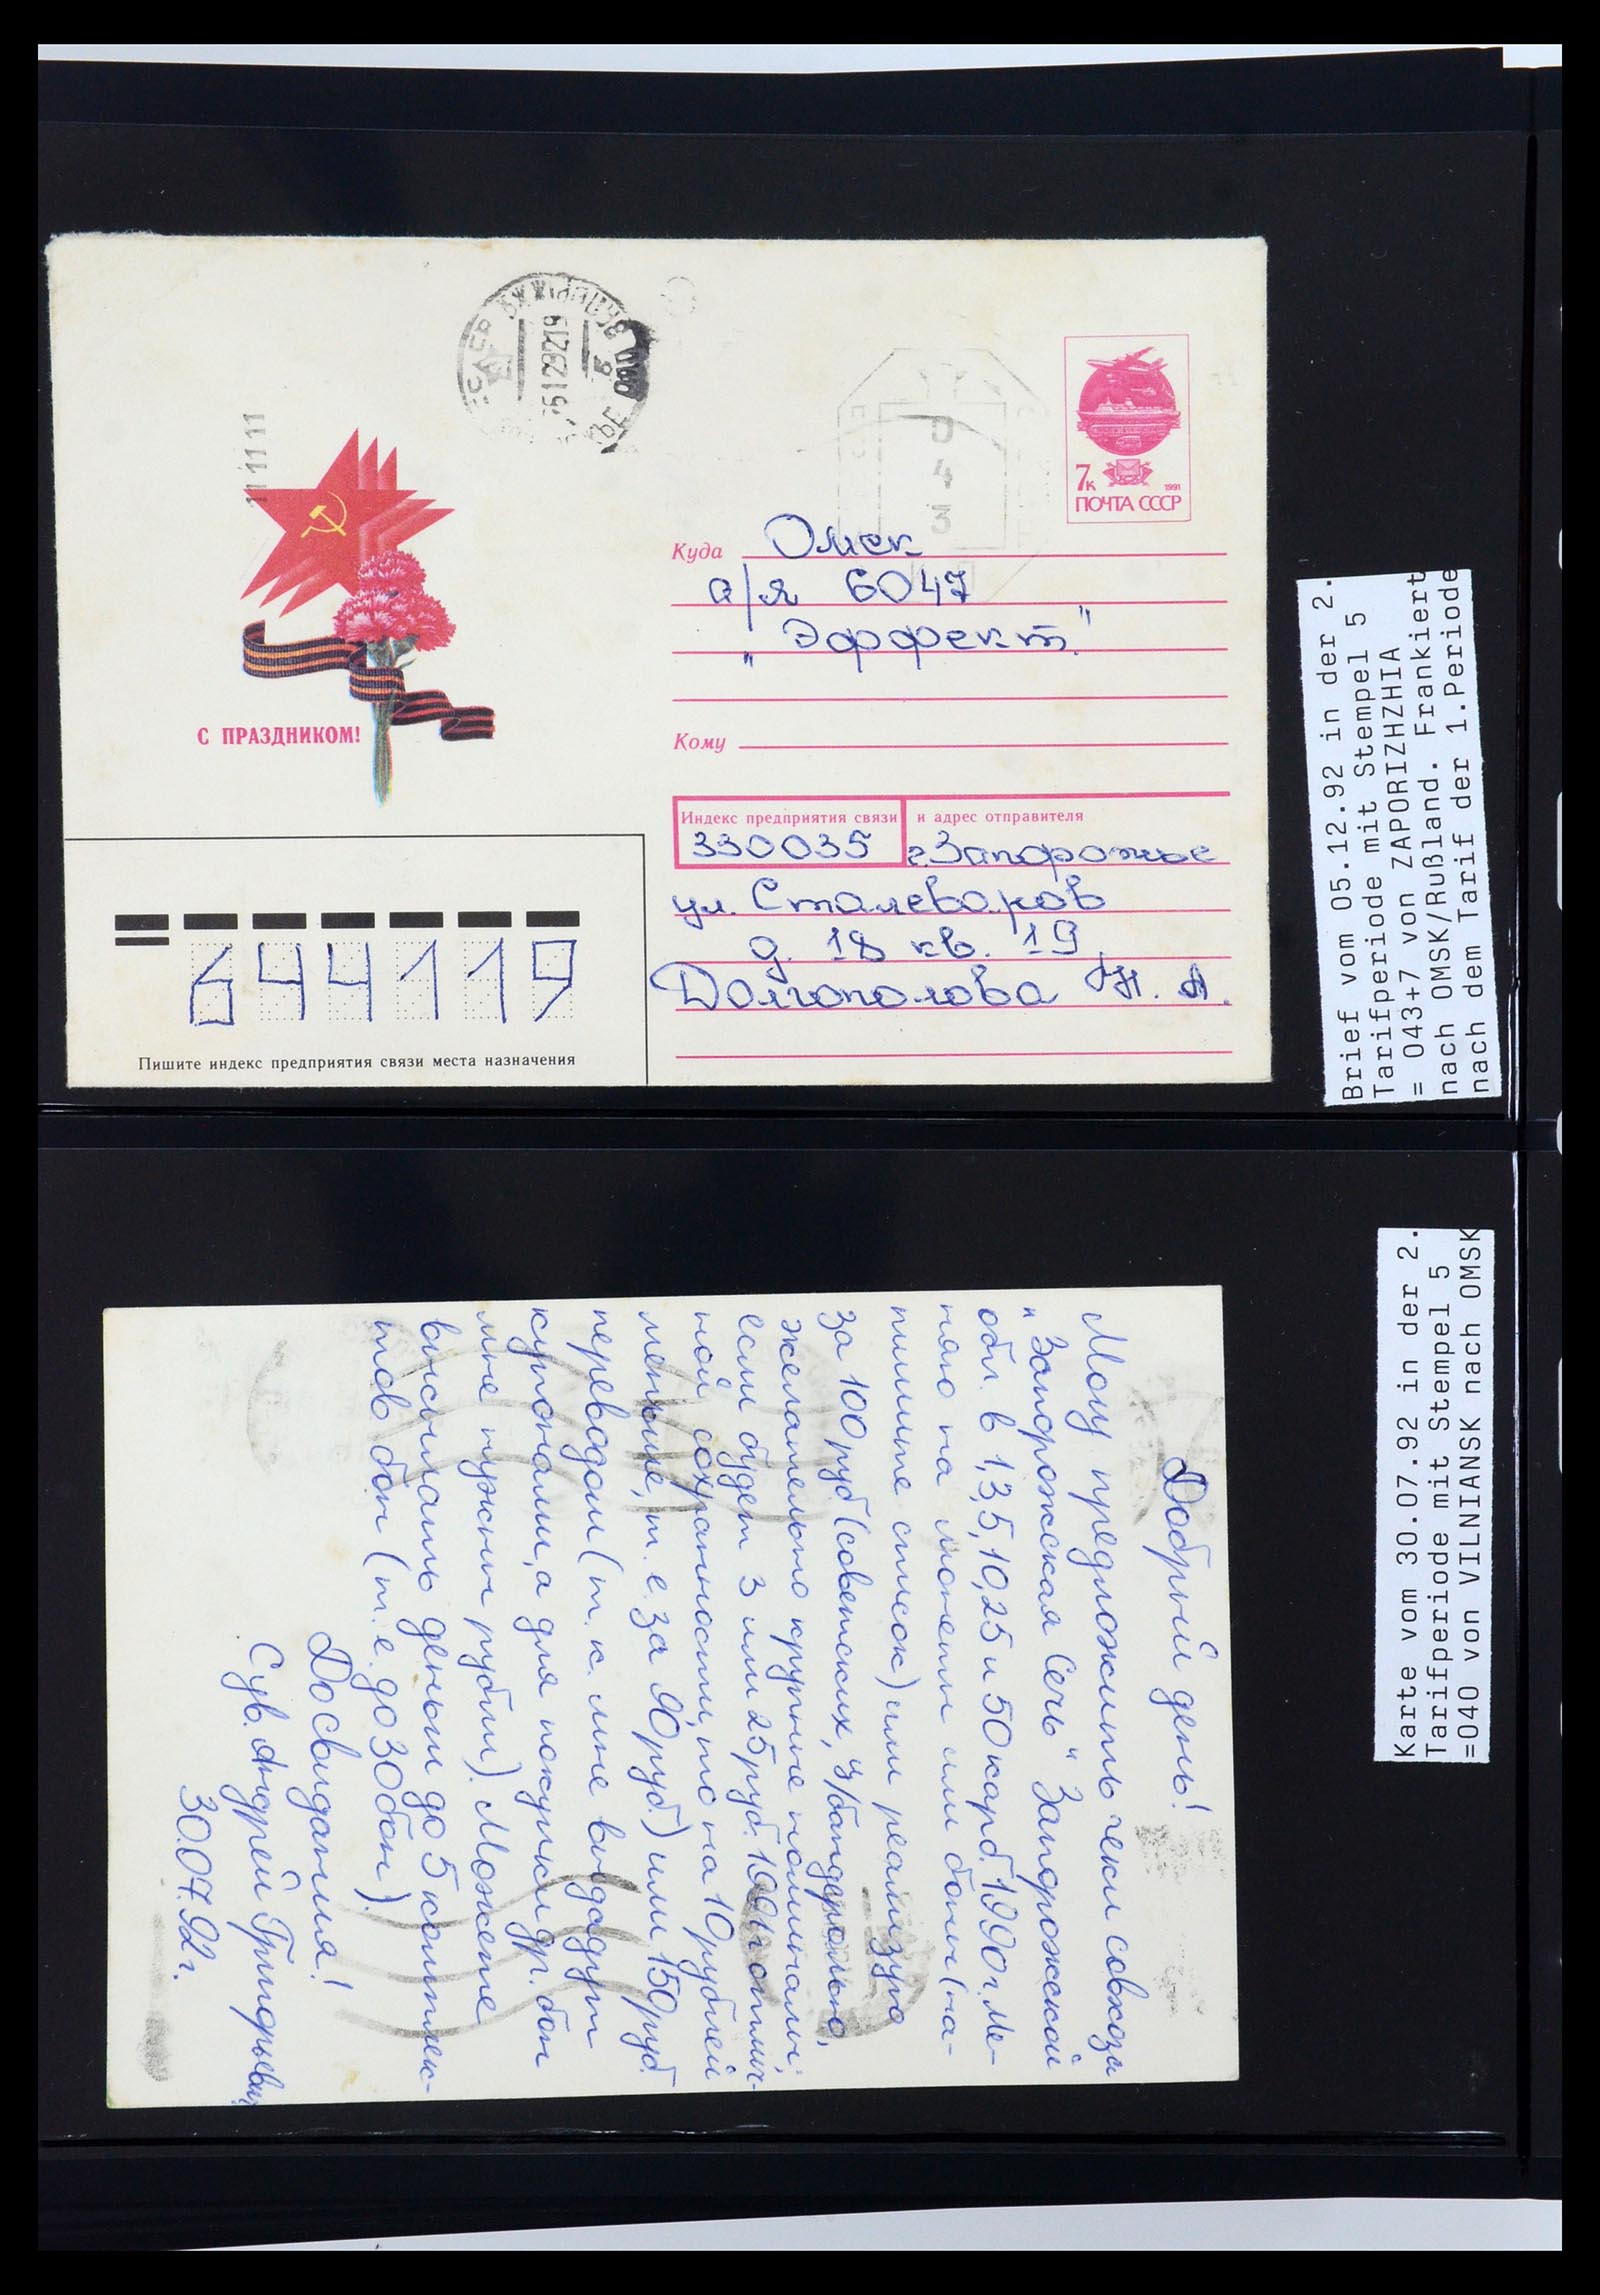 7к
1991
ПОЧТА СССР
043
Куда Омск
а/я 6047
„Эффект"
Кому
С ПРАЗДНИКОМ!
Индекс предприятия связи и адрес отправителя
330035 г. Запорожье
ул. Сталеваров
д. 18 кв. 19
Долгополова Н. А.
644119
Пишите индекс предприятия связи места назначения
Brief vom 05.12.92 in der 2.
Tarifperiode mit Stempel 5
= 043+7 von ZAPORIZHZHIA
nach OMSK/Rußland. Frankiert
nach dem Tarif der 1.Periode
Добрый день!
Могу предложить чеки совхоза
„Запорожская Сечь" Запорожской
обл. в 1,3,5,10,25 и 50 карб. 1990г. Ме-
няю на монеты или боны (на-
пишите список) или реализую
за 100 руб (советских, ц/бандеролью,
желательно крупные номиналы;
если будет 3 или 25 руб. 1961 отлич-
ной сохранности, то на 10 рублей
меньше, т. е. за 90 руб.) или 150 руб.
переводом (т. к. мне выдадут
купонами, а для покупки др. бон
мне нужны рубли). Можете
высылать деньги до 5 комплек-
тов бон (т. е. до 30 бон).
До свидания!
С ув. Андрей Григорьевич
30.07.92г.
Karte vom 30.07.92 in der 2.
Tarifperiode mit Stempel 5
=040 von VILNIANSK nach OMSK